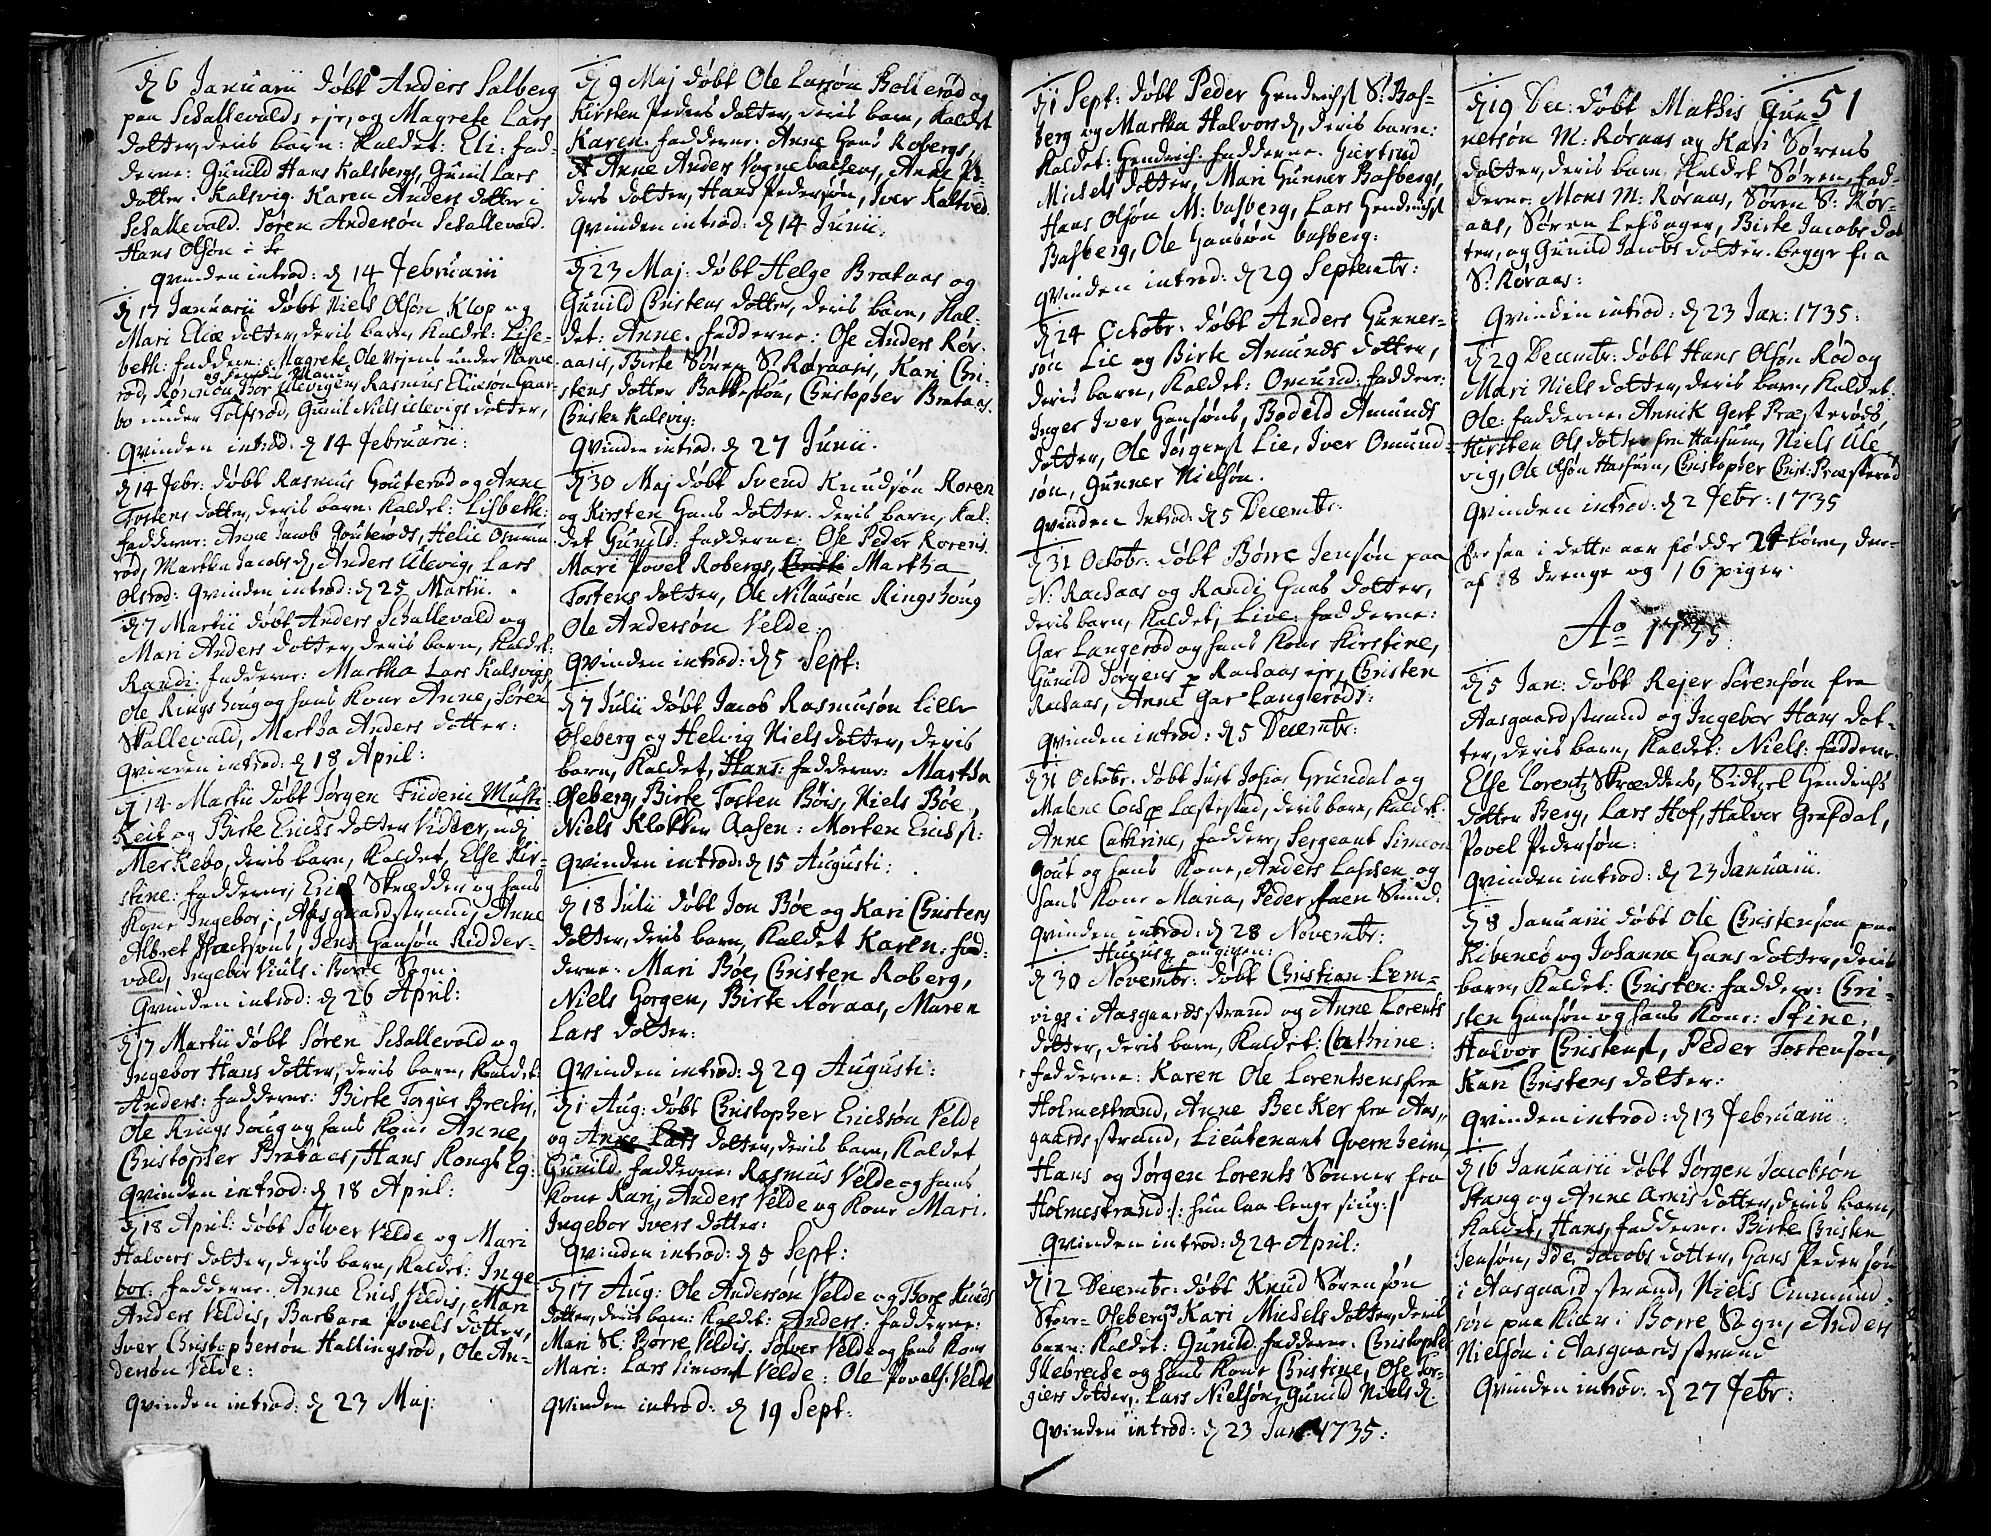 d 6 Januarii døbt Anders Salberg
paa Schallevalds eje, og Magrete Lars
dotter, deris barn: Kaldet: Eli: fad-
derne: Gunild Hans Kalsbergs, Gunil Lars
dotter i Kalsvig. Karen Anders dotter i
Schallevald. Søren Andersøn Schallevald.
Hans Olsøn i
Qvinden introd: d 14 Februarii
d 17 Januarii døbt Niels Olsøn Klop og
Mari Eliæ dotter, deris barn, Kaldet: Lise-
beth: faddere: Magrete Ole Vejens under Narve
rød, Rønnou Bor Ulevigens Rasmus Ericsøn Gaar-
bo under Tolfsrød, Gunil Niels Ulevigs dotter,
Qvinden introd: d 14 Februarii:
d 14 Febr: døbt Rasmus Gouterød og Anne
Tostens dotter, deris barn: Kaldet: Lisbeth:
fadderne: Anne Jacob Gouterøds, Helie Osmun
rød, Martha Jacobs d, Anders Ulevig, Lars
Olsrød: Qvinden introd: d 25 Martii.
d 7 Martii døbt Anders Schallevald og
Mari Anders dotter, deris barn, Kaldet:
Randi: fadderne: Martha Lars Kalsvigs,
Ole Ringshoug og hans Kone Anne, Søren
Skallevald, Martha Anders dotter:
Qvinden introd: d 18 April:
d 14 Martii døbt Jørgen Frideric Musti
Keil og Birte Erichs dotter Vidder, udj
Merkebo, deris barn, Kaldet, Else Kir-
stine: fadderne, Erich Skrædder og hans
Kone Ingebor, i Aasgaardstrand, Anne
Albret Jacksons, Jens Hansøn Ridder-
vold, Ingebor Niels i Borre Sogn:
Qvinden introd: d 26 April:
d 17 Martii døbt Søren Schallevald og
Ingebor Hans dotter, deris barn, Kaldet:
Anders: fadderne: Birte Torgius Brechs,
Ole Ringshoug og hans Kone Anne,
Christopher Brataas, Hans Kongs Eg:
Qvinden introd: d 18 April:
d 18 April: døbt Sølver Velde og Mari
Halvors dotter, deris barn, Kaldet: Inge
bor: fadderne: Anne Erich Veldis, Mari
Anders Veldis, Barbara Povels dotter,
Iver Christophersøn Hallingsrød, Ole An-
dersøn Velde:
Qvinden introd: d 23 Maj:
d 9 Maj døbt Ole Larsøn Bollerød og
Kirsten Peders dotter, deris barn, Kaldet
Karen: fadderne: Anne Hans Robergs,
Anne Anders Vognebachens, Anne Pe-
ders dotter, Hans Pedersøn, Iver Kaltved.
Qvinden introd: d 14 Junii:
d 23 Maj: døbt Helge Brataas og
Gunild Christens dotter, deris barn, Kal-
det: Anne: fadderne: Ose Anders Rør-
aasis, Birte Søren S. Røraasis, Kari Chri-
stens dotter Batteskou, Christopher Brataas.
Christen Kalsvig:
Qvinden introd: d 27 Junii.
d 30 Maj døbt Svend Knudsøn Roren
og Kirsten Hans dotter. deris barn, Kal-
det Gunild: fadderne: Ose Peder Rorens.
Mari Povel Robergs, Martha
Tostens dotter, Ole Nilausøn Ringshoug
Ole Andersøn Velde:
Qvinden introd: d 5 Sept:
d 7 Julii døbt Jacob Rasmusøn Lille
Oseberg og Helvig Niels dotter, deris
barn, Kaldet, Hans: fadderne: Martha
Oseberg, Birte Tosten Bøis, Niels Bøe,
Niels Klokker Aasen: Morten Erichs:
Qvinden introd: d 15 Augusti:
d 18 Julii døbt Jon Bøe og Kari Christens
dotter, deris barn, Kaldet Karen: fad:
derne: Mari Bøe, Christen Roberg,
Niels Gorgen, Birte Røraas, Maren
Lars dotter:
Qvinden introd: d 29 Augusti:
d 1 Aug: døbt Christopher Ericksøn Velde
og Anne Lars dotter, deris barn, Kaldet
Gunild: fadderne: Rasmus Velde og hans
Kone Kari, Anders Velde og Kone Mari.
Ingebor Ivers dotter:
Qvinden introd: d 5 Sept:
d 17 Aug: Ole Andersøn Velde og Thore Knuds
dotter, deris barn: Kaldet: Anders: fadderne:
Mari Sl. Borre Veldis. Sølver Velde og hans Kone
Mari: Lars Simons Velde: Ole Povels: Velde
Qvinden introd: d 19 Sept:
d 1 Sept: døbt Peder Hendrichs S: Bas-
berg og Martha Halvors d, deris barn:
Kaldet: Hendrich: fadderne. Giertrud
Michels dotter, Mari Gunner Basbergs,
Hans Olsøn M: basberg, Lars Hendrichs
Basberg, Ole Hansøn basberg:
Qvinden introd: d 29 Septembr:
d 24 Octobr: døbt Anders Gunner-
søn Lie og Birte Amunds dotter,
deris barn, Kaldet: Omund: fadder:
Inger Iver Hansøns, Bodild Amunds
dotter, Ole Jørgens Lie, Iver Omund-
søn, Gunner Nielsøn.
Qvinden Introd: d 5 Decembr:
d 31 Octobr: døbt Børre Jensøn paa
N: Rachaas og Randi Hans dotter,
deris barn, Kaldet, Live: fadderne:
Gar Langerød og hans Kone Kirstine,
Gunild Jørgens p Rachaas eje, Christen
Rachaas, Anne Gar Langerøds:
Qvinden introd: d 5 Decembr:
d 31 Octobr. døbt Just Josias Grundal og
Malene Cocks Læstestad, deris barn, Kaldet:
Anne Cathrine, fadder, Sergeant Simeon
Gout og hans Kone, Anders Lassen og
hans Kone Maria, Peder Faen Sund:
Qvinden introd: d 28 Novembr:
d 30 Novembr: døbt Christian Lem-
vigs i Aasgaardstrand og Anne Lorents
dotter, deris barn, Kaldet: Cathrine:
fadderne: Karen Ole Lorentsens fra
Holmestrand, Anne Becker fra Aas-
gaardstrand, Lieutenant Qvernheim,
Hans og Jørgen Lorents Sønner fra
Holmestrand:/: hun laa lenge siug:/
Qvinden introd: d 24 April:
d 12 Decembr: døbt Knud Sørensøn
Store-Oseberg og Kari Michels dotter, deris
barn: Kaldet: Gunild: fadderne: Christopher
Ilebrecke og hans Kone Christine, Ose Tor-
giers dotter, Lars Nielsøn, Gunild Niels d.
Qvinden introd: d 23 Jan: 1735:
51
d 19 Dec: døbt Mathis Gun-
netsøn M: Røraas og Kari Sørens
dotter, deris barn, Kaldet Søren, fad-
derne: Mons M: Røraas, Søren S: Rør-
aas, Søren Lefsager, Birte Jacobs dot
ter, og Gunild Jacobs dotter. begge fra
S: Røraas:
Qvinden introd: d 23 Jan: 1735:
d 29 Decembr: døbt Hans Olsøn Rød og
Mari Niels dotter, deris barn, Kaldet:
Ole: fadderne: Annik Gert Præsterøds,
Kirsten Ols dotter fra Hassum, Niels Ule
vig, Ole Olsøn Hassum, Christopher Christ: Præsterød
Qvinden introd: d 2 Febr: 1735
Er saa i dette aar fødde 24 børn, der-
af 8 drenge og 16 piger.
Ao 1735:
d 5 Jan: døbt Rejer Sørensøn fra
Aasgaardstrand og Ingebor Hans dot-
ter, deris barn, Kaldet: Niels: faddere
Else Lorentz Skrædders, Sidtzel Hendrichs
dotter Berg, Lars Hof, Halvor Grefdal,
Povel Pedersøn:
Qvinden introd: d 23 Januarii.
d 8 Januarii døbt Ole Christensøn paa
Kibenes og Johanne Hans dotter, deris
barn, Kaldet: Christen: fadder: Chri-
sten Hansøn og hans Kone: Stine,
Halvor Christens, Peder Tostensøn,
Kari Christens dotter:
Qvinden introd: d 13 Februarii
d 16 Januarii døbt Jørgen Jacobsøn
Stang og Anne Arnis dotter, deris barn,
Kaldet, Hans, fadderne: Birte Christen
Jensøn, Ide Jacobs dotter, Hans Pedersøn
i Aasgaardstrand, Niels Emmund-
søn paa Kiær i Borre Sogn, Anders
Nielsøn i Aasgaardstrand
Qvinden introd: d 27 Febr: